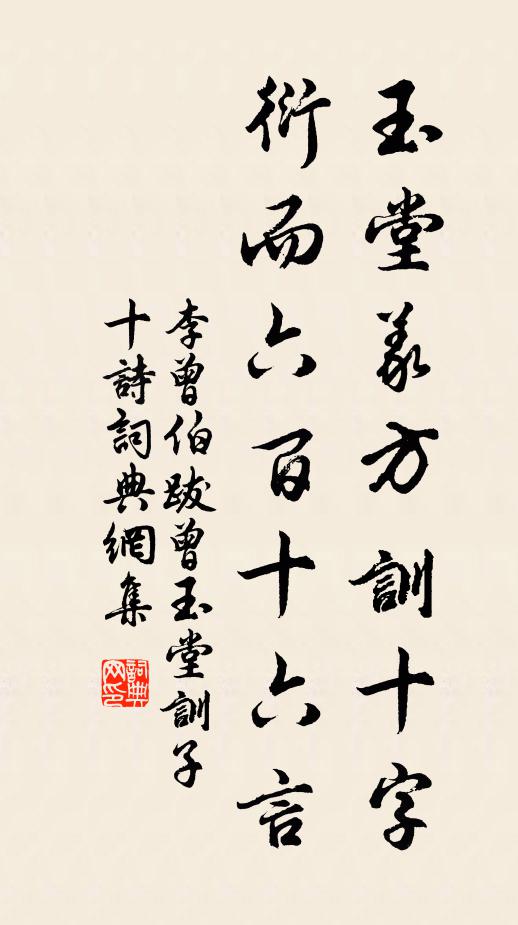 玉堂義方訓十字
衍而六百十六言
李曾伯跋曾玉堂訓子
十詩詞典網集
詞典
网印